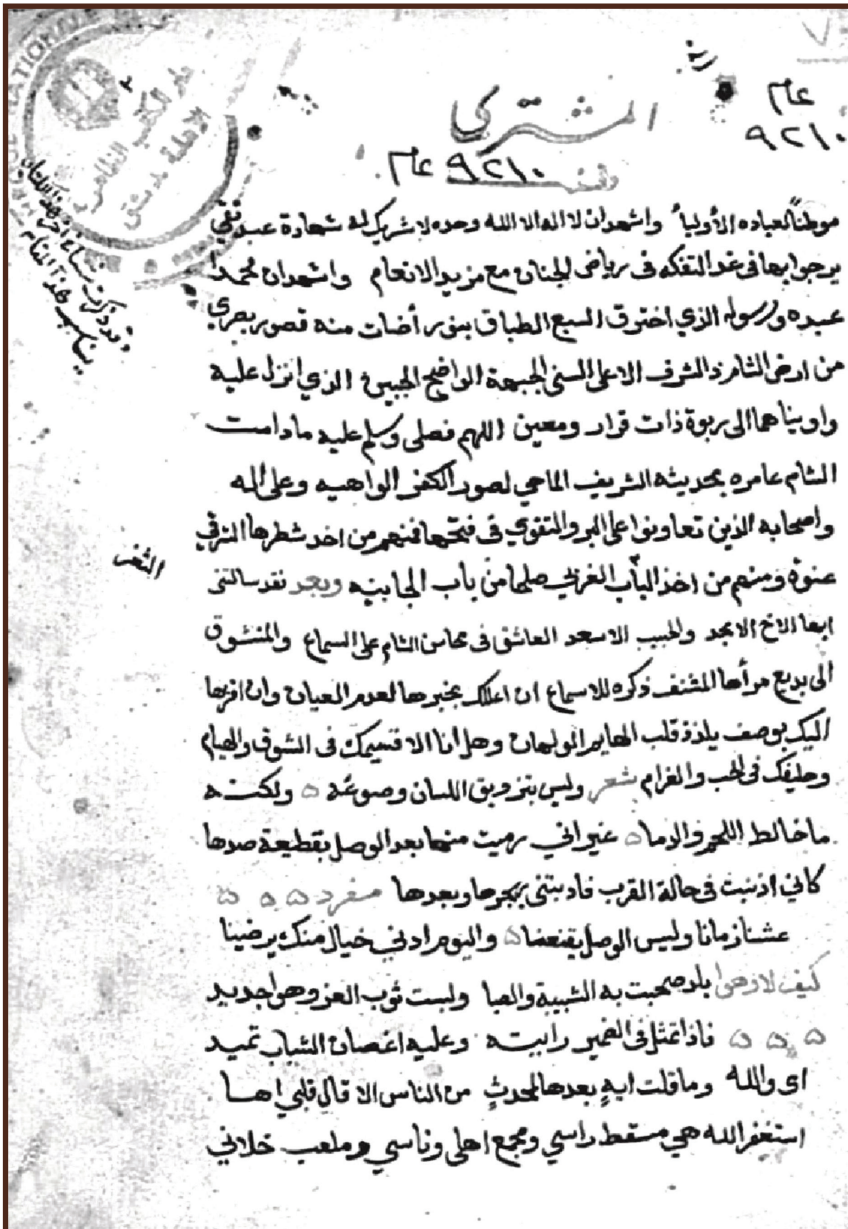 عام
٩٢١٠
المشتري
٩٢١٠ عام
دار الكتب الظاهرية
الأهلية بدمشق
موطناً لعباده الأولياء واشهد ان لا اله الا الله وحده لا شريك له شهادة عبد تقي
يرجوا بها في غد التفكه في رياض الجنان مع مزيد الانعام واشهد ان محمدا
عبده ورسوله الذي اخترق السبع الطباق بنور أضات منه قصور بصري
من ارض الشام ذا الشرف الاعلى السني الجبهة الواضح الجبين الذي انزل عليه
واويناهما الى ربوة ذات قرار ومعين اللهم فصلى وسلم عليه ما دامت
الشام عامره بحديثه الشريف الماحي لصور الكفر الواهيه وعلى اله
واصحابه الذين تعاونوا على البر والتقوي في فتحها فمنهم من اخد شطرها الشرقي
عنوة ومنهم من اخذ الباب الغربي صلحا من باب الجابيه وبعد فقد سالتني
الثغر
ايها الاخ الامجد والحبيب الاسعد العاشق في محاسن الشام على السماع والمتشوق
الى بديع مرأها المشنف ذكره للاسماع ان اعلك بخبرها لعدم العيان وان اقربها
اليك بوصف يلذذ قلب الهايم الولهان وهل انا الا قسيمك في الشوق والهيام
وحليفك في الحب والغرام شعر وليس بتزويق اللسان وصوغه ولكنه
ما خالط اللحم والدما غير اني رميت منها بعد الوصل بقطيعة صدها
كاني اذنبت في حالة القرب فادبتني بهجرها وبعدها مفرد
عشنا زمانا وليس الوصل يقنعنا واليوم ادني خيال منك يرضينا
كيف لا وهي بلد صحبت به الشبيبة والصبا ولبست ثوب العز وهو اجديد
فاذا تمثل في الضمير رايته وعليه اغصان الشباب تميد
اي والله وما قلت ايهٍ بعدها لمحدثٍ من الناس الا قال قلبي اها
استغفر الله هي مسقط راسي ومجمع اهلي وناسي وملعب خلاني